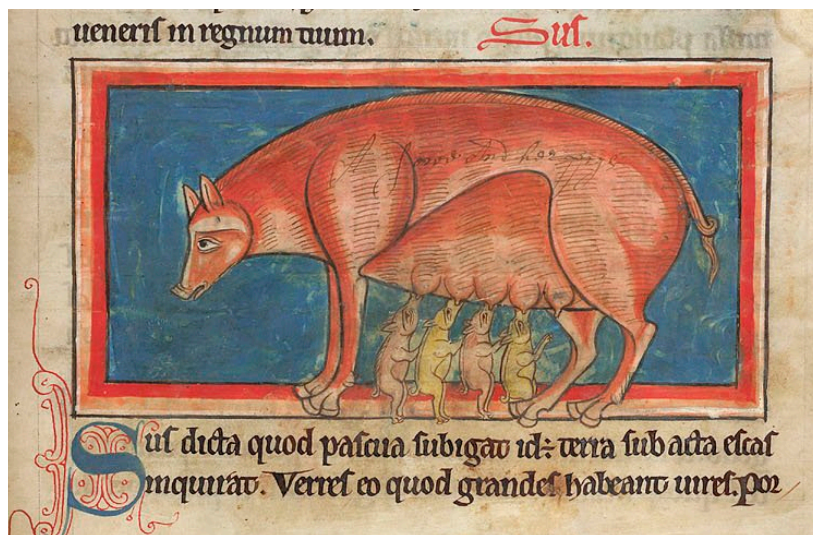 ueneris in regnum tuum. Sus.
Sus dicta quod pascua subigat id÷ terra sub acta escas
inquirat. Verres eo quod grandes habeant uires. por